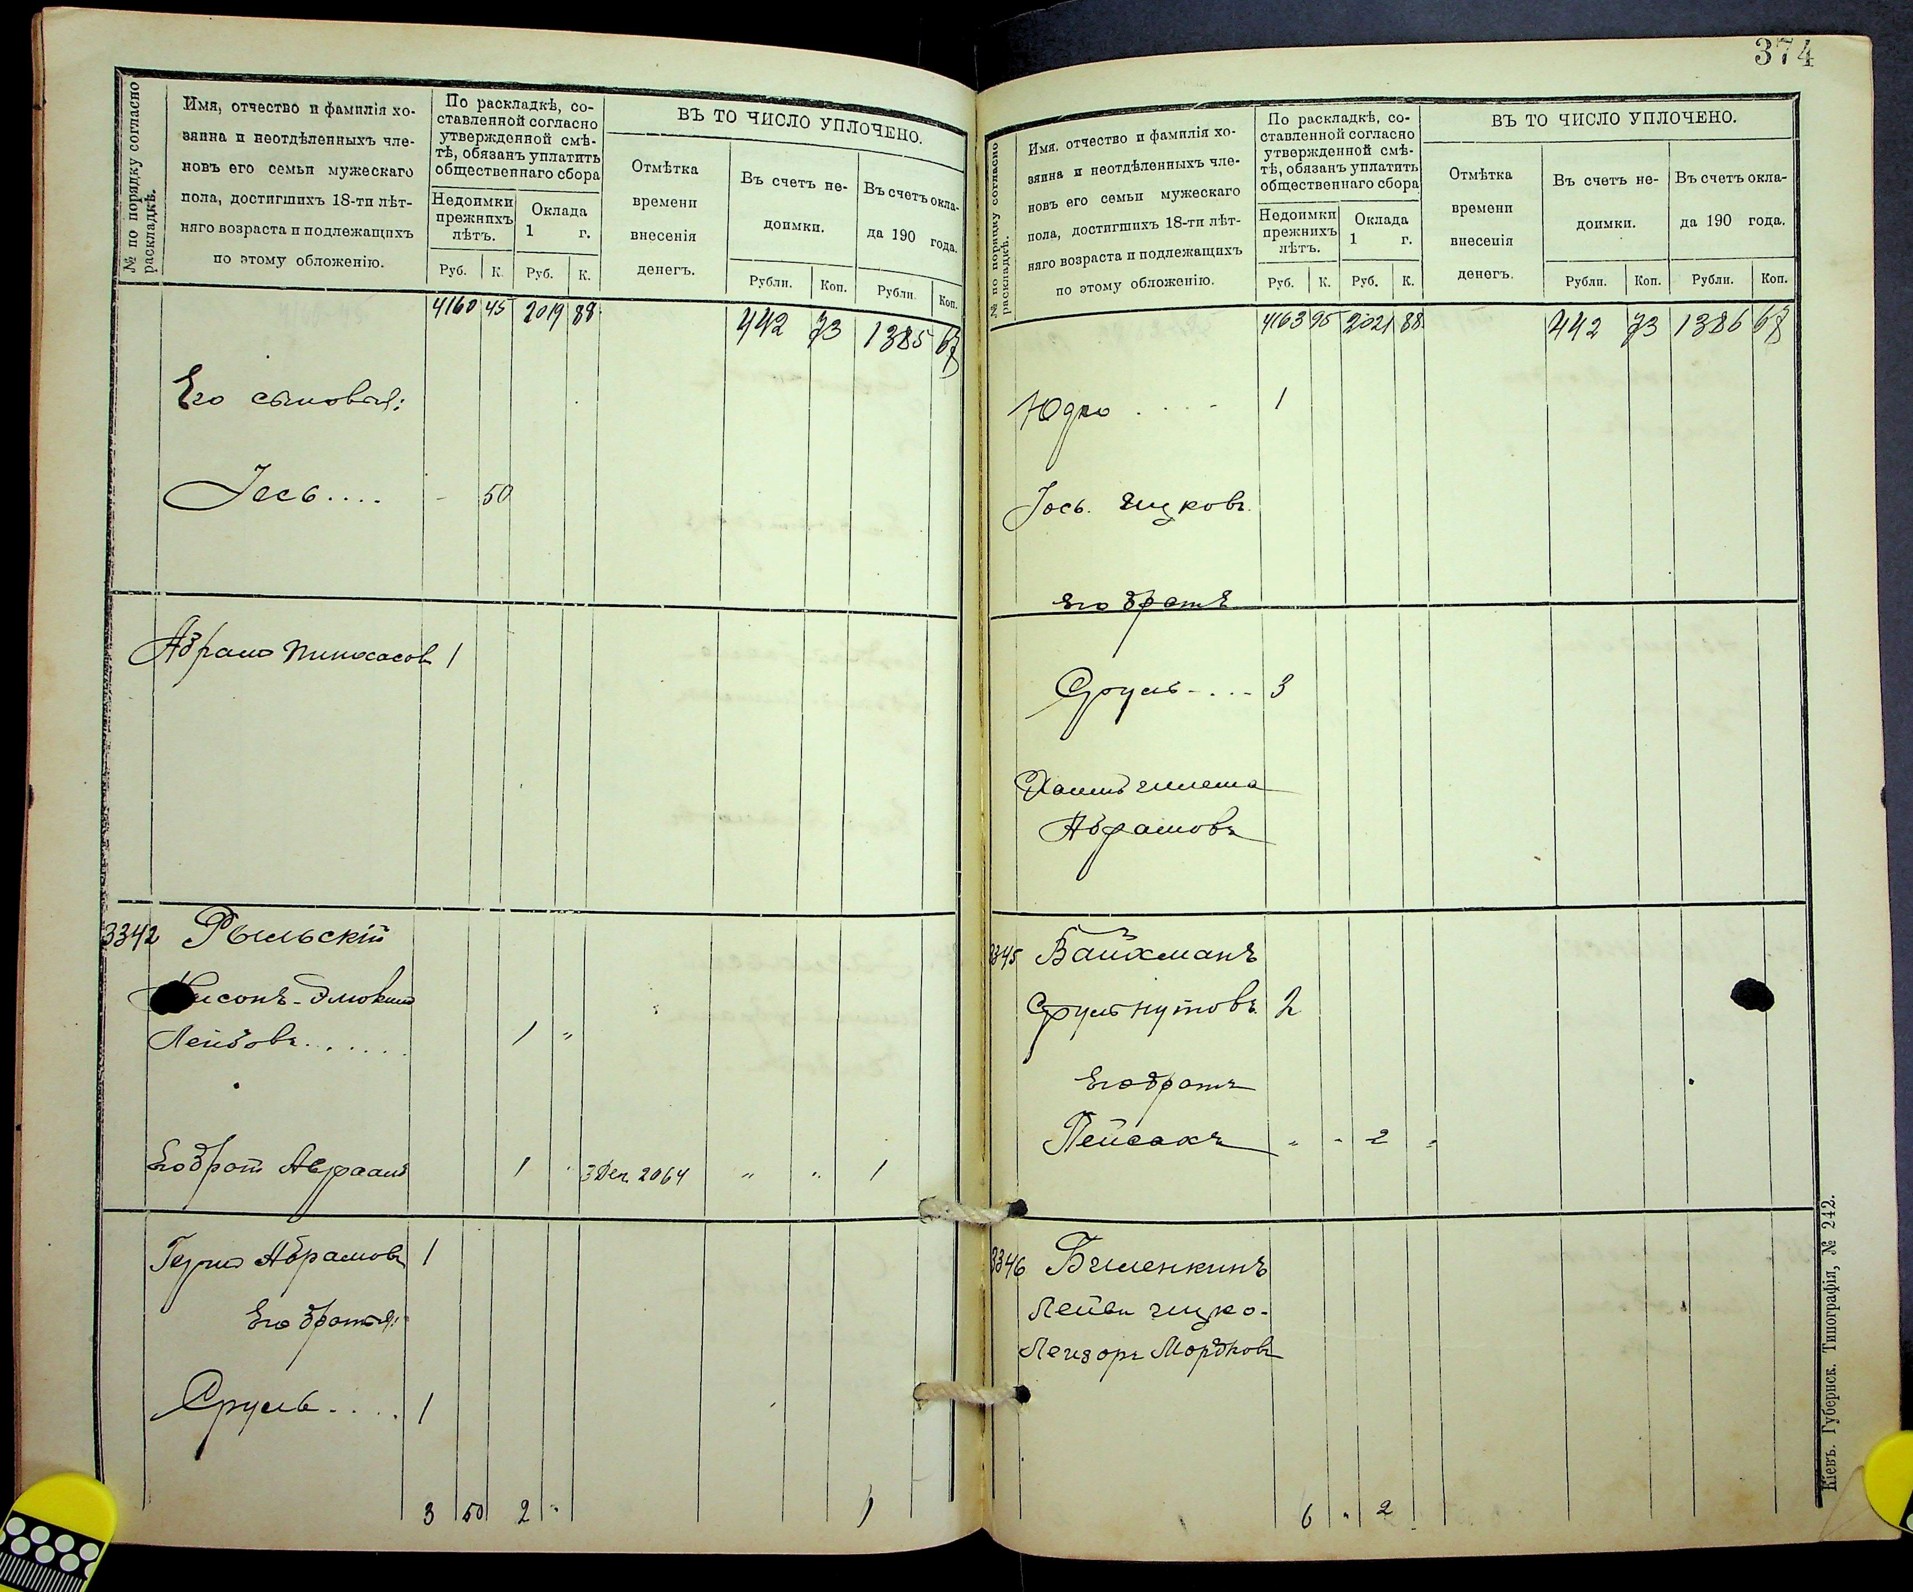 374
№ по порядку согласно раскладкѣ.
Имя, отчество и фамилія хо-
зяина и неотдѣленныхъ чле-
новъ его семьи мужескаго
пола, достигшихъ 18-ти лѣт-
няго возраста и подлежащихъ
по этому обложенію.
По раскладкѣ, со-
ставленной согласно
утвержденной смѣ-
тѣ, обязанъ уплатить
общественнаго сбора
Недоимки
прежнихъ
лѣтъ.
Оклада
1 г.
Руб. К. Руб. К.
ВЪ ТО ЧИСЛО УПЛОЧЕНО.
Отмѣтка
времени
внесенія
денегъ.
Въ счетъ не-
доимки.
Въ счетъ окла-
да 190 года.
Рубли. Коп. Рубли. Коп.
4160 45 2019 88 442 73 1385 67
Его сыновья:
Іось.... - 50
Абрамъ Пинхасовъ 1
3342 Рыльскій
Лейбовъ...... 1 "
Его братъ Авраамъ 1 " 3 Дек. 2064 " " 1
Герша Абрамовъ 1
Его братья:
Сруль.... 1
3 50 2 " 1
№ по порядку согласно раскладкѣ.
Имя, отчество и фамилія хо-
зяина и неотдѣленныхъ чле-
новъ его семьи мужескаго
пола, достигшихъ 18-ти лѣт-
няго возраста и подлежащихъ
по этому обложенію.
По раскладкѣ, со-
ставленной согласно
утвержденной смѣ-
тѣ, обязанъ уплатить
общественнаго сбора
Недоимки
прежнихъ
лѣтъ.
Оклада
1 г.
Руб. К. Руб. К.
ВЪ ТО ЧИСЛО УПЛОЧЕНО.
Отмѣтка
времени
внесенія
денегъ.
Въ счетъ не-
доимки.
Въ счетъ окла-
да 190 года.
Рубли. Коп. Рубли. Коп.
4163 95 2021 88 442 73 1386 67
Юдко .... 1
Іось Ицковъ
Его братъ
Сруль.... 3
Абрамовъ
3345 Байхманъ
Сруль Нутовъ 2
Его братъ
Пейсахъ " - 2 "
3346 Биленкинъ
Лейви Ицко-
Лейзоръ Мордковъ
6 " 2
Кіевъ. Губернск. Типографія, № 242.